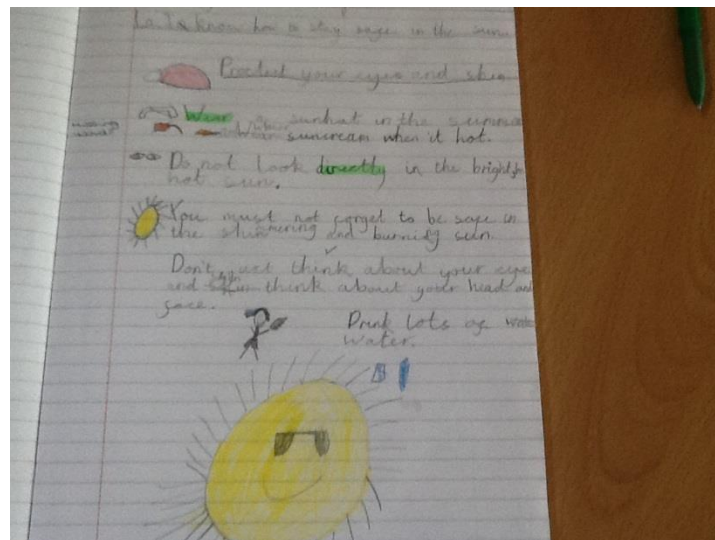 to know how to stay safe in the sun.
Protect your eyes and skin
Wear a sunhat in the summer
Wear suncream when it hot.
Do not look directly in the bright
hot sun.
You must not forget to be safe in
the shimmering and burning sun.
Don't just think about your eyes
and skin think about your head and
face.
Drink lots of
water.